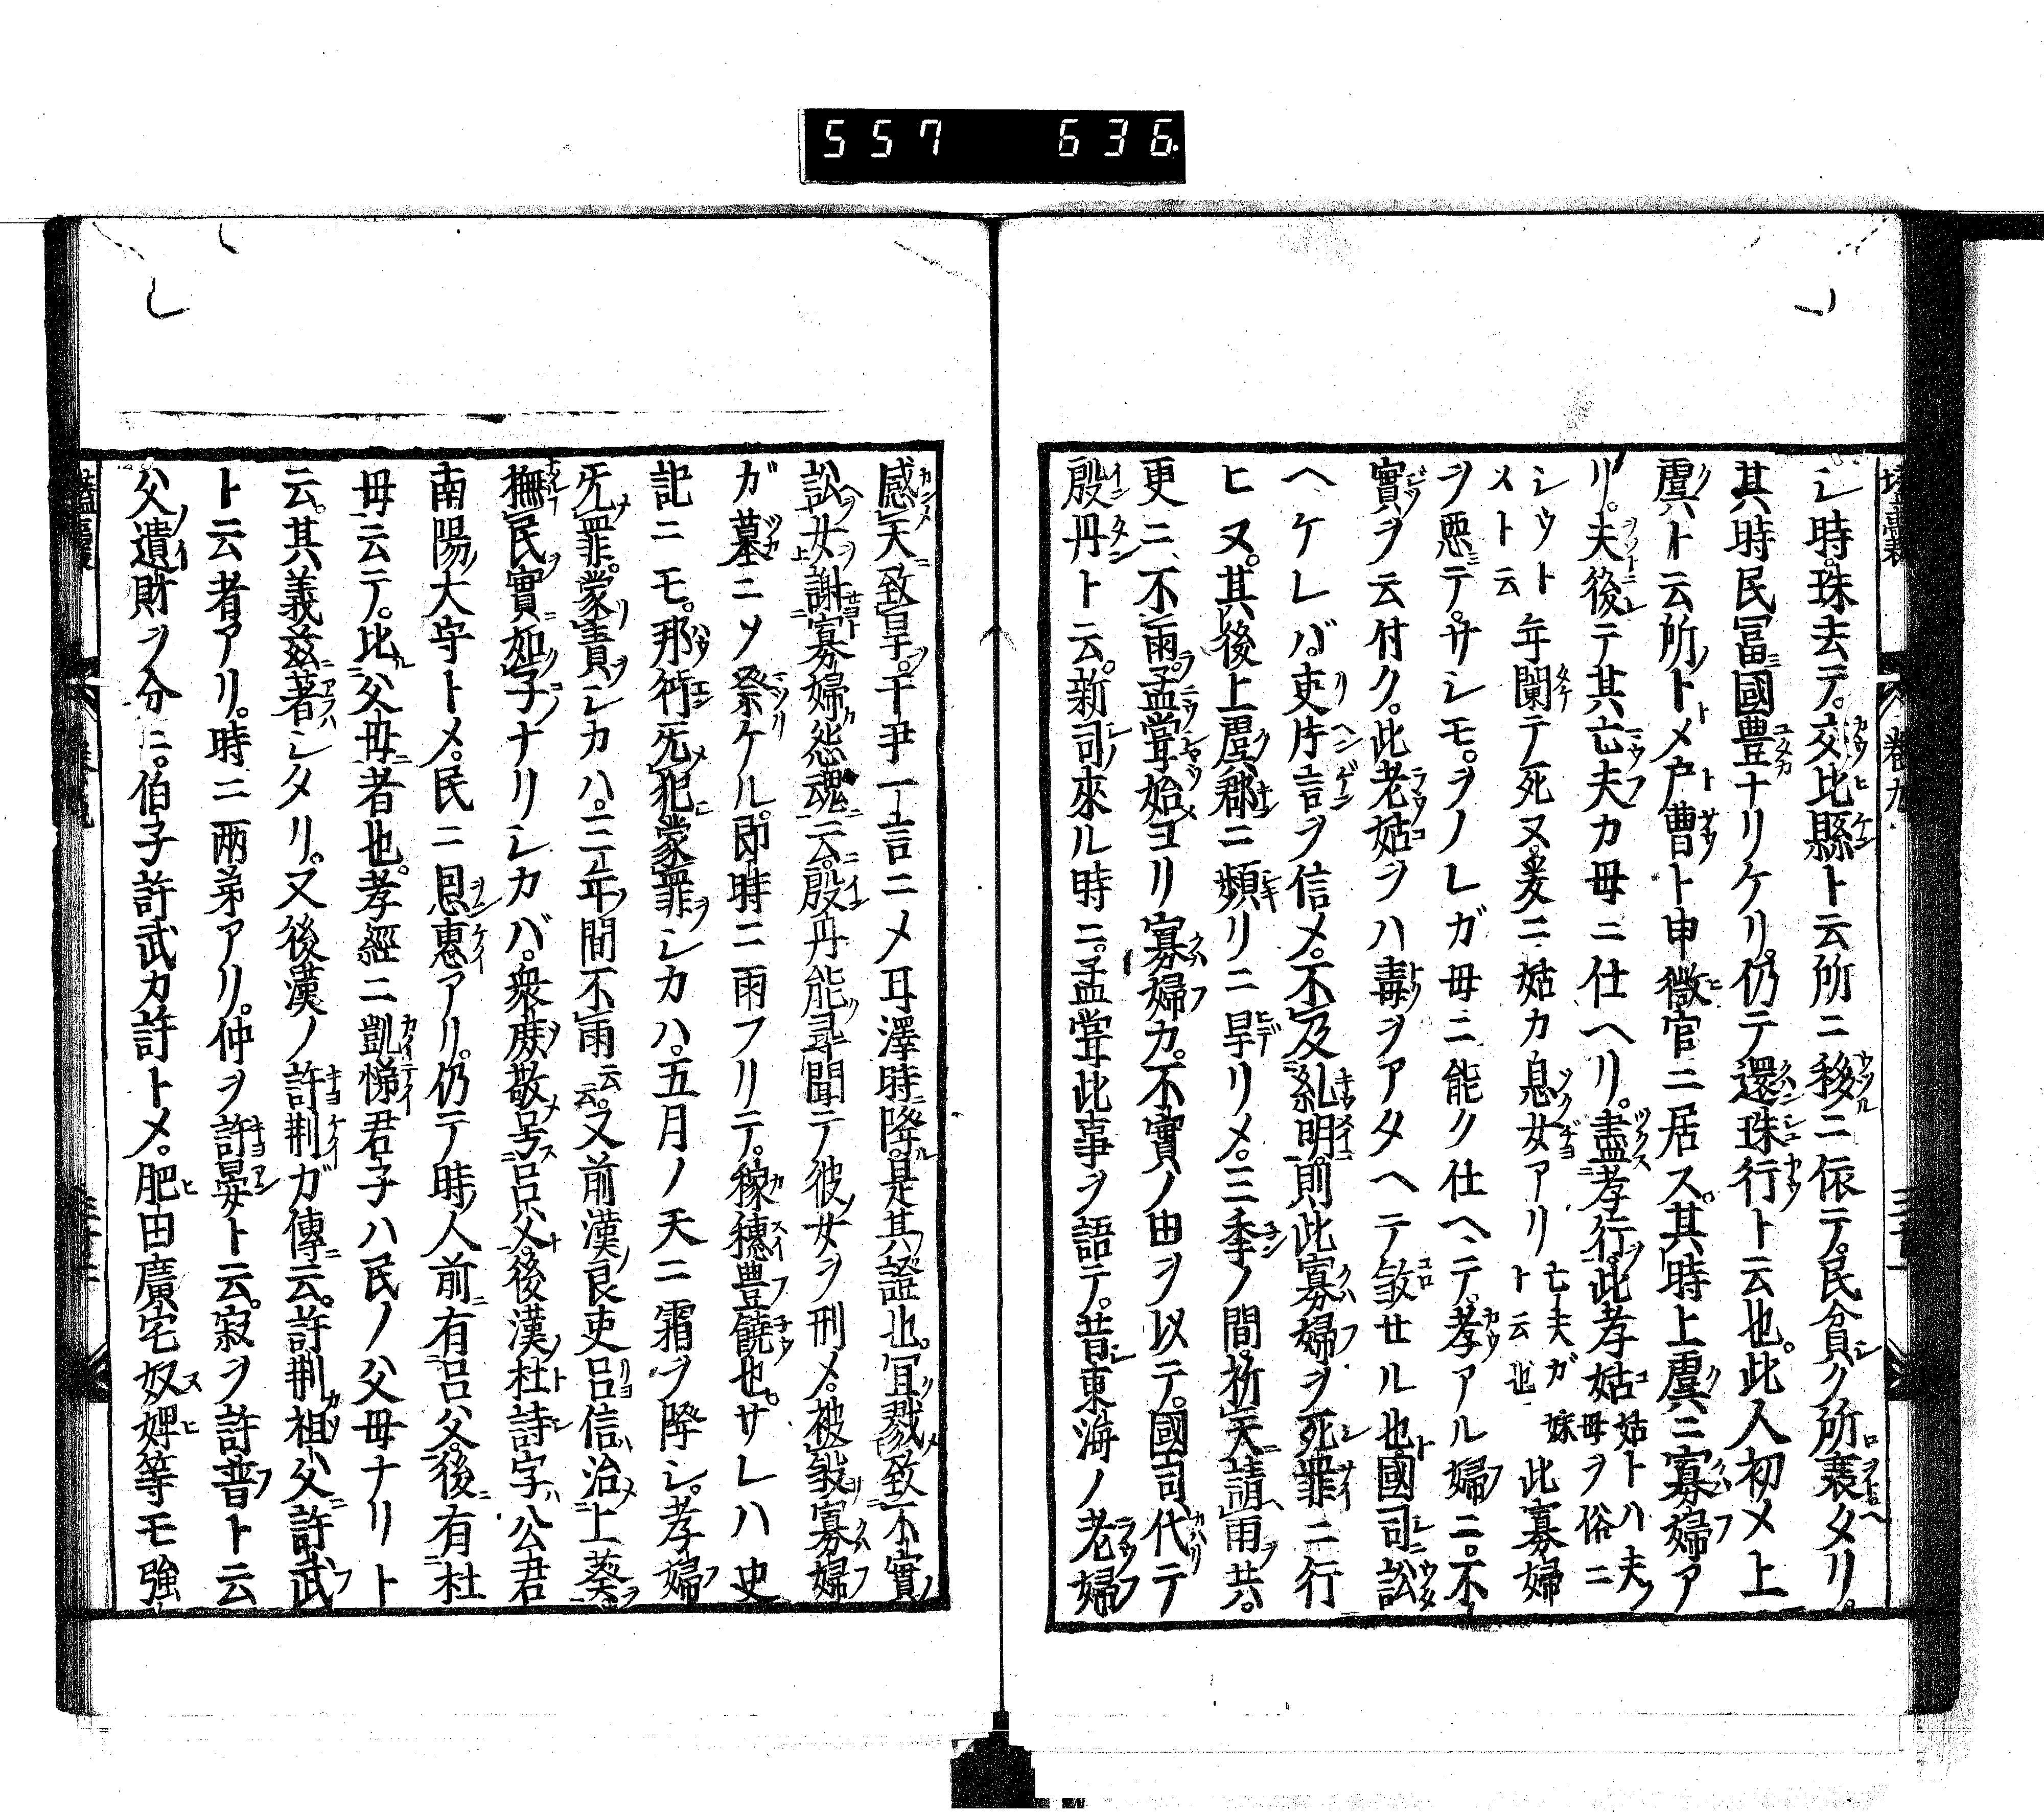 557 636
巻九
シ時。珠去テ。交比縣ト云所ニ移ニ依テ。民貧ク所衰タリ。
其時民冨國豊ナリケリ。仍テ還珠行ト云也。此人初メ上
虞ト云所ノトメ戸曹ト申微官ニ居ス。其時上虞ニ寡婦ア
リ。夫後テ其亡夫カ母ニ仕ヘリ。盡孝行。此孝姑姑トハ夫ノ母ヲ俗ニ
シウトメト云年闌テ死ヌ。爰ニ姑カ息女アリ亡夫ガ妹ト云也此寡婦
ヲ悪テ。サレモ。ヲノレガ母ニ能ク仕ヘテ。孝アル婦ニ。不
實ヲ云付ク。此老姑ヲハ毒ヲアタヘテ敘セル也國司訟
ヘケレバ。吏片言ヲ信メ。不及糺明。則此寡婦ヲ死罪ニ行
ヒヌ。其後上虞郡ニ頻リニ旱リメ。三季ノ間。祈天請雨共。
更ニ不雨。孟甞始ヨリ寡婦カ。不實ノ由ヲ以テ。國司代テ
殷丹ト云。新司來ル時ニ。孟甞此事ヲ語テ。昔東海ノ老婦
感天致旱。干尹一言ニメ耳澤時降。是其證也。宜戮致不實
訟女謝寡婦怨魂云。殷丹能尋聞テ彼女ヲ刑メ。被敘寡婦
ガ墓ニソ祭ケル。即時ニ雨フリテ。稼穗豊饒也。サレハ史
記ニモ。那衍旡犯蒙罪シカハ。五月ノ天ニ霜ヲ降シ。孝婦
旡罪。蒙責シカハ。三年間不雨云云。又前漢ノ良吏呂信治上蔡
撫民實如子ナリシカバ。衆庻敬号呂父。後漢杜詩字公君
南陽大守トメ。民ニ恩惠アリ。仍テ時人前有呂父。後有杜
母云テ。比父母者也。孝經ニ凱悌君子ハ民ノ父母ナリト
云。其義茲著シタリ。又後漢ノ許荆ガ傳云。許荆祖父許武
ト云者アリ。時ニ二兩弟アリ。仲ヲ許晏ト云。寂ヲ許普ト云
父遺財ヲ分ニ。伯子許武カ許トメ。肥田廣宅奴婢等モ強